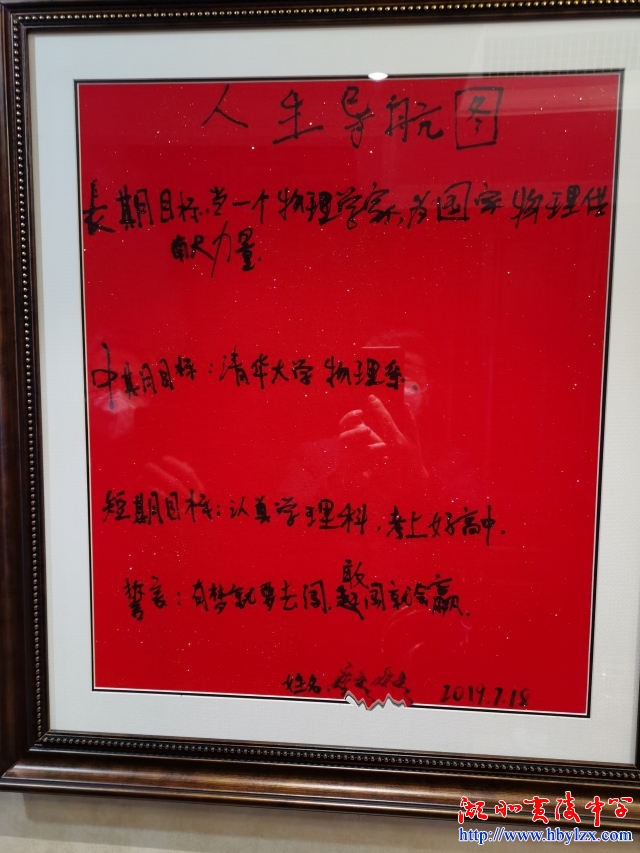 人生导航图
长期目标:当一个物理学家,为国家物理供
献力量.
中期目标:清华大学物理系。
短期目标:认真学理科,考上好高中.
敢
誓言:有梦就要去闯,趕闯就会赢.
姓名 2019.7.18
湖北夷陵中学
http://www.hbylzx.com